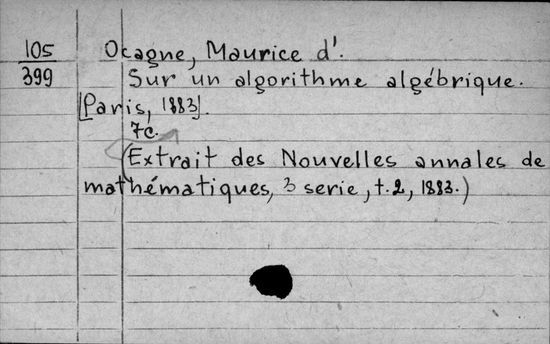 105
399
Ocagne, Maurice d'.
Sur un algorithme algébrique.
[Paris, 1883].
7c.
(Extrait des Nouvelles annales de
mathématiques, 3 serie, t.2, 1883.)